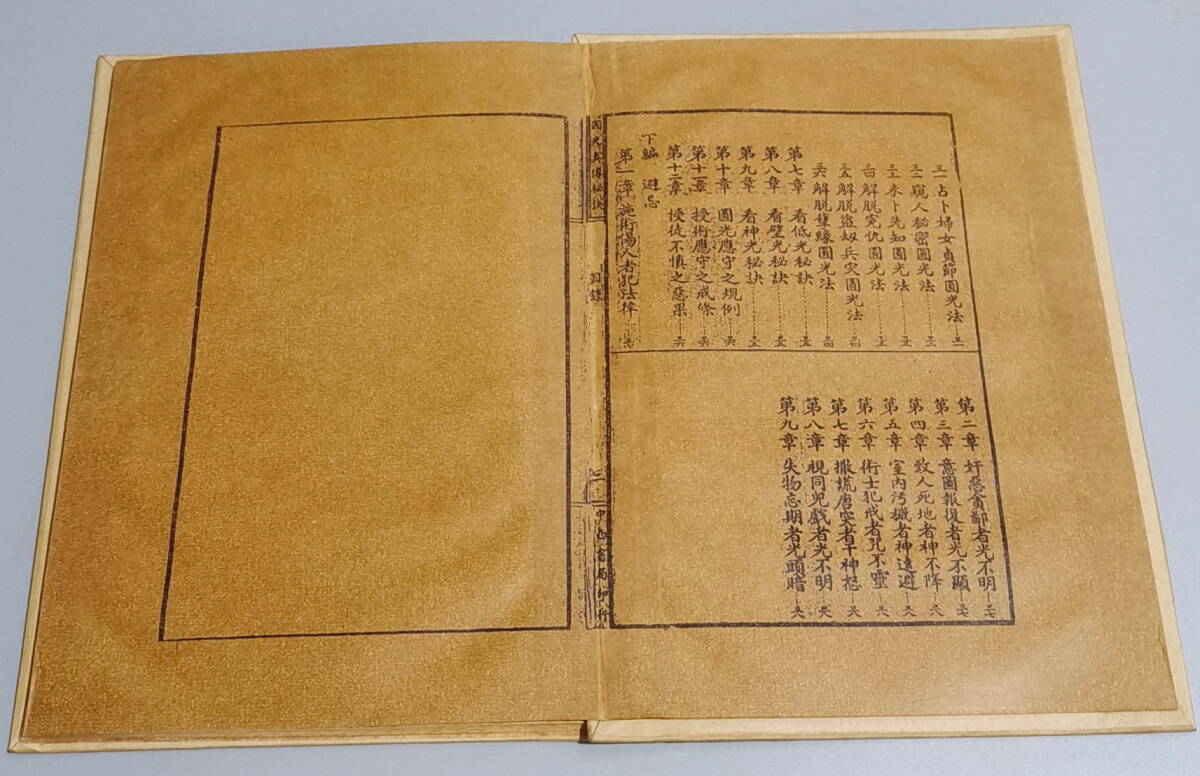 三一占卜婦女貞節圓光法
三二窺人秘密圓光法
三三未卜先知圓光法
三四解脫冤仇圓光法
三五解脫盜刼兵灾圓光法
三六解脫孽緣圓光法
第七章 看低光秘訣
第八章 看壁光秘訣
第九章 看神光秘訣
第十章 圓光應守之規例
第十一章 授術應守之戒條
第十二章 授徒不慎之惡果
下編 避忌
第一章 施術傷人者犯法律
第二章 奸惡貪鄙者光不明
第三章 意圖報復者光不顯
第四章 致人死地者神不降
第五章 室內汚穢者神遠避
第六章 術士犯戒者咒不靈
第七章 撒謊唐突者干神怒
第八章 視同兒戲者光不明
第九章 失物忘期者光頭暗
目錄
中西書局印行